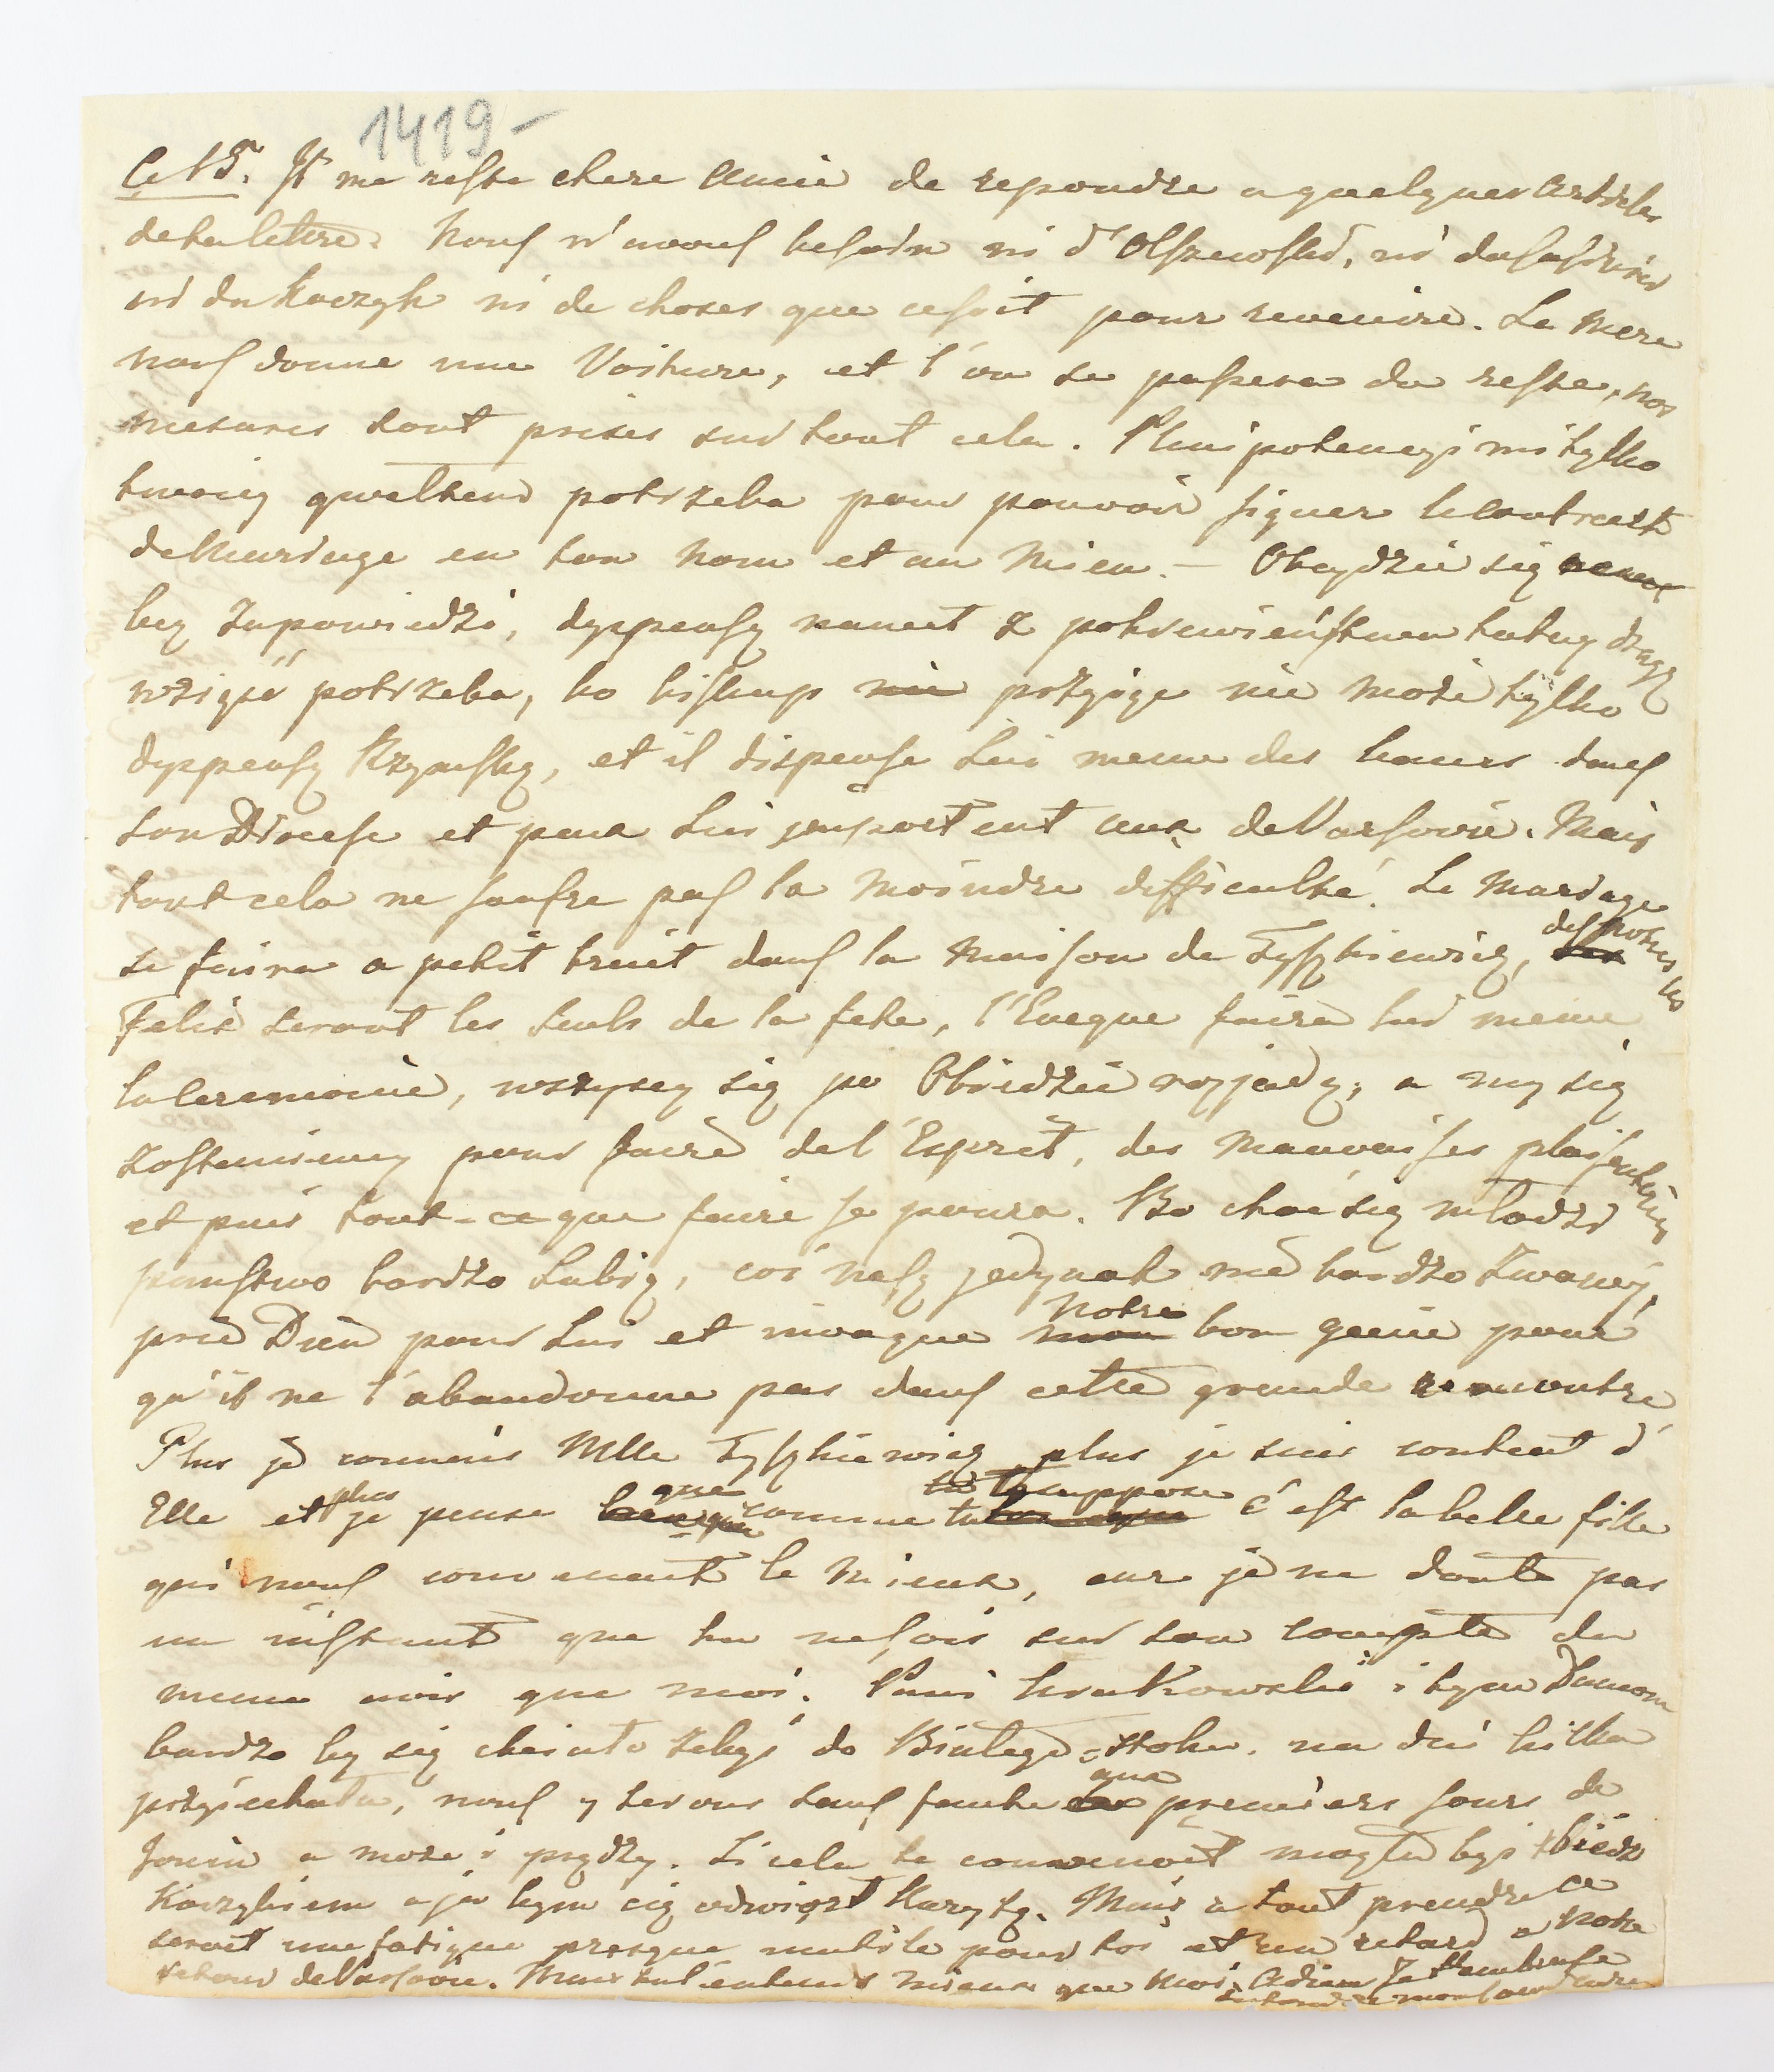 1419-
Ce 15. Il me reste chere Amie de repondre a quelques Articles
de ta lettre. Nous n'avons besoin ni d'Olszewski, ni
ni du Koczyk ni de choses que ce soit pour revenire. La Mere
nous donne une Voiture, et l'on se passera du reste, nos
mesures sont prises sur tout cela. Plenipotencyi mi tylko
twoiey gwałtem potrzeba pour pouvoir signer le Contract
de Mariage en ton nom et au Mien. — Obeydzie się
bez Zapowiedzi, dyspensę nawet z pokrewieństwa tutay drugą
wziąść potrzeba, bo biskup nie przyiąć nie może tylko
dyspensę Rzymską, et il dispense Lui meme des bancs dans
son Diocese et peux Lui importent ceux de Varsovie. Mais
tout cela ne soufre pas la moindre difficulté. Le Mariage
se faira a petit bruit dans la Maison de Tyszkiewicz, des notres les
Felix seront les seuls de la fete, l'Eveque faira lui meme
la Ceremonie, wszyscy się po Obiedzie rozjadą, a my się
zostaniemy pour faire de l'Esprit, des Mauvaises plaisanteries
et puis tout-ce que faire se poura. Bo choć się młodzi
państwo bardzo Lubią, coś nasz jedynak nie bardzo Żwawy,
prie Dieu pour Lui et invoque mon notre bon genie pour
qu'il ne l'abandonne pas dans cette grande rencontre
Plus je connais Mlle Tyszkiewicz plus je suis content d'
Elle et plus je pense que comme tu le suppose c'est la belle fille
qui nous convenait le Mieux, car je ne doute pas
un instant que tu ne sois sur son compte du
meme avis que moi. Pani Krakowska i tym Panom
bardzo by się chciało żebyś do Białego-stoku na dni kilka
przyiechała, nous y serons sans faute aux premiers Jours de
Jouin a może i prędzy. Si cela te convenoit mogła byś zbiedz
Koczykiem a ja bym cię odwiozł Karytą. Mais a tout prendre ce
serait une fatigue presque inutile pour toi et un retard a notre
retour de Varsovie. Mais tu l'entends mieux que Moi. Adieu Je t'embrasse